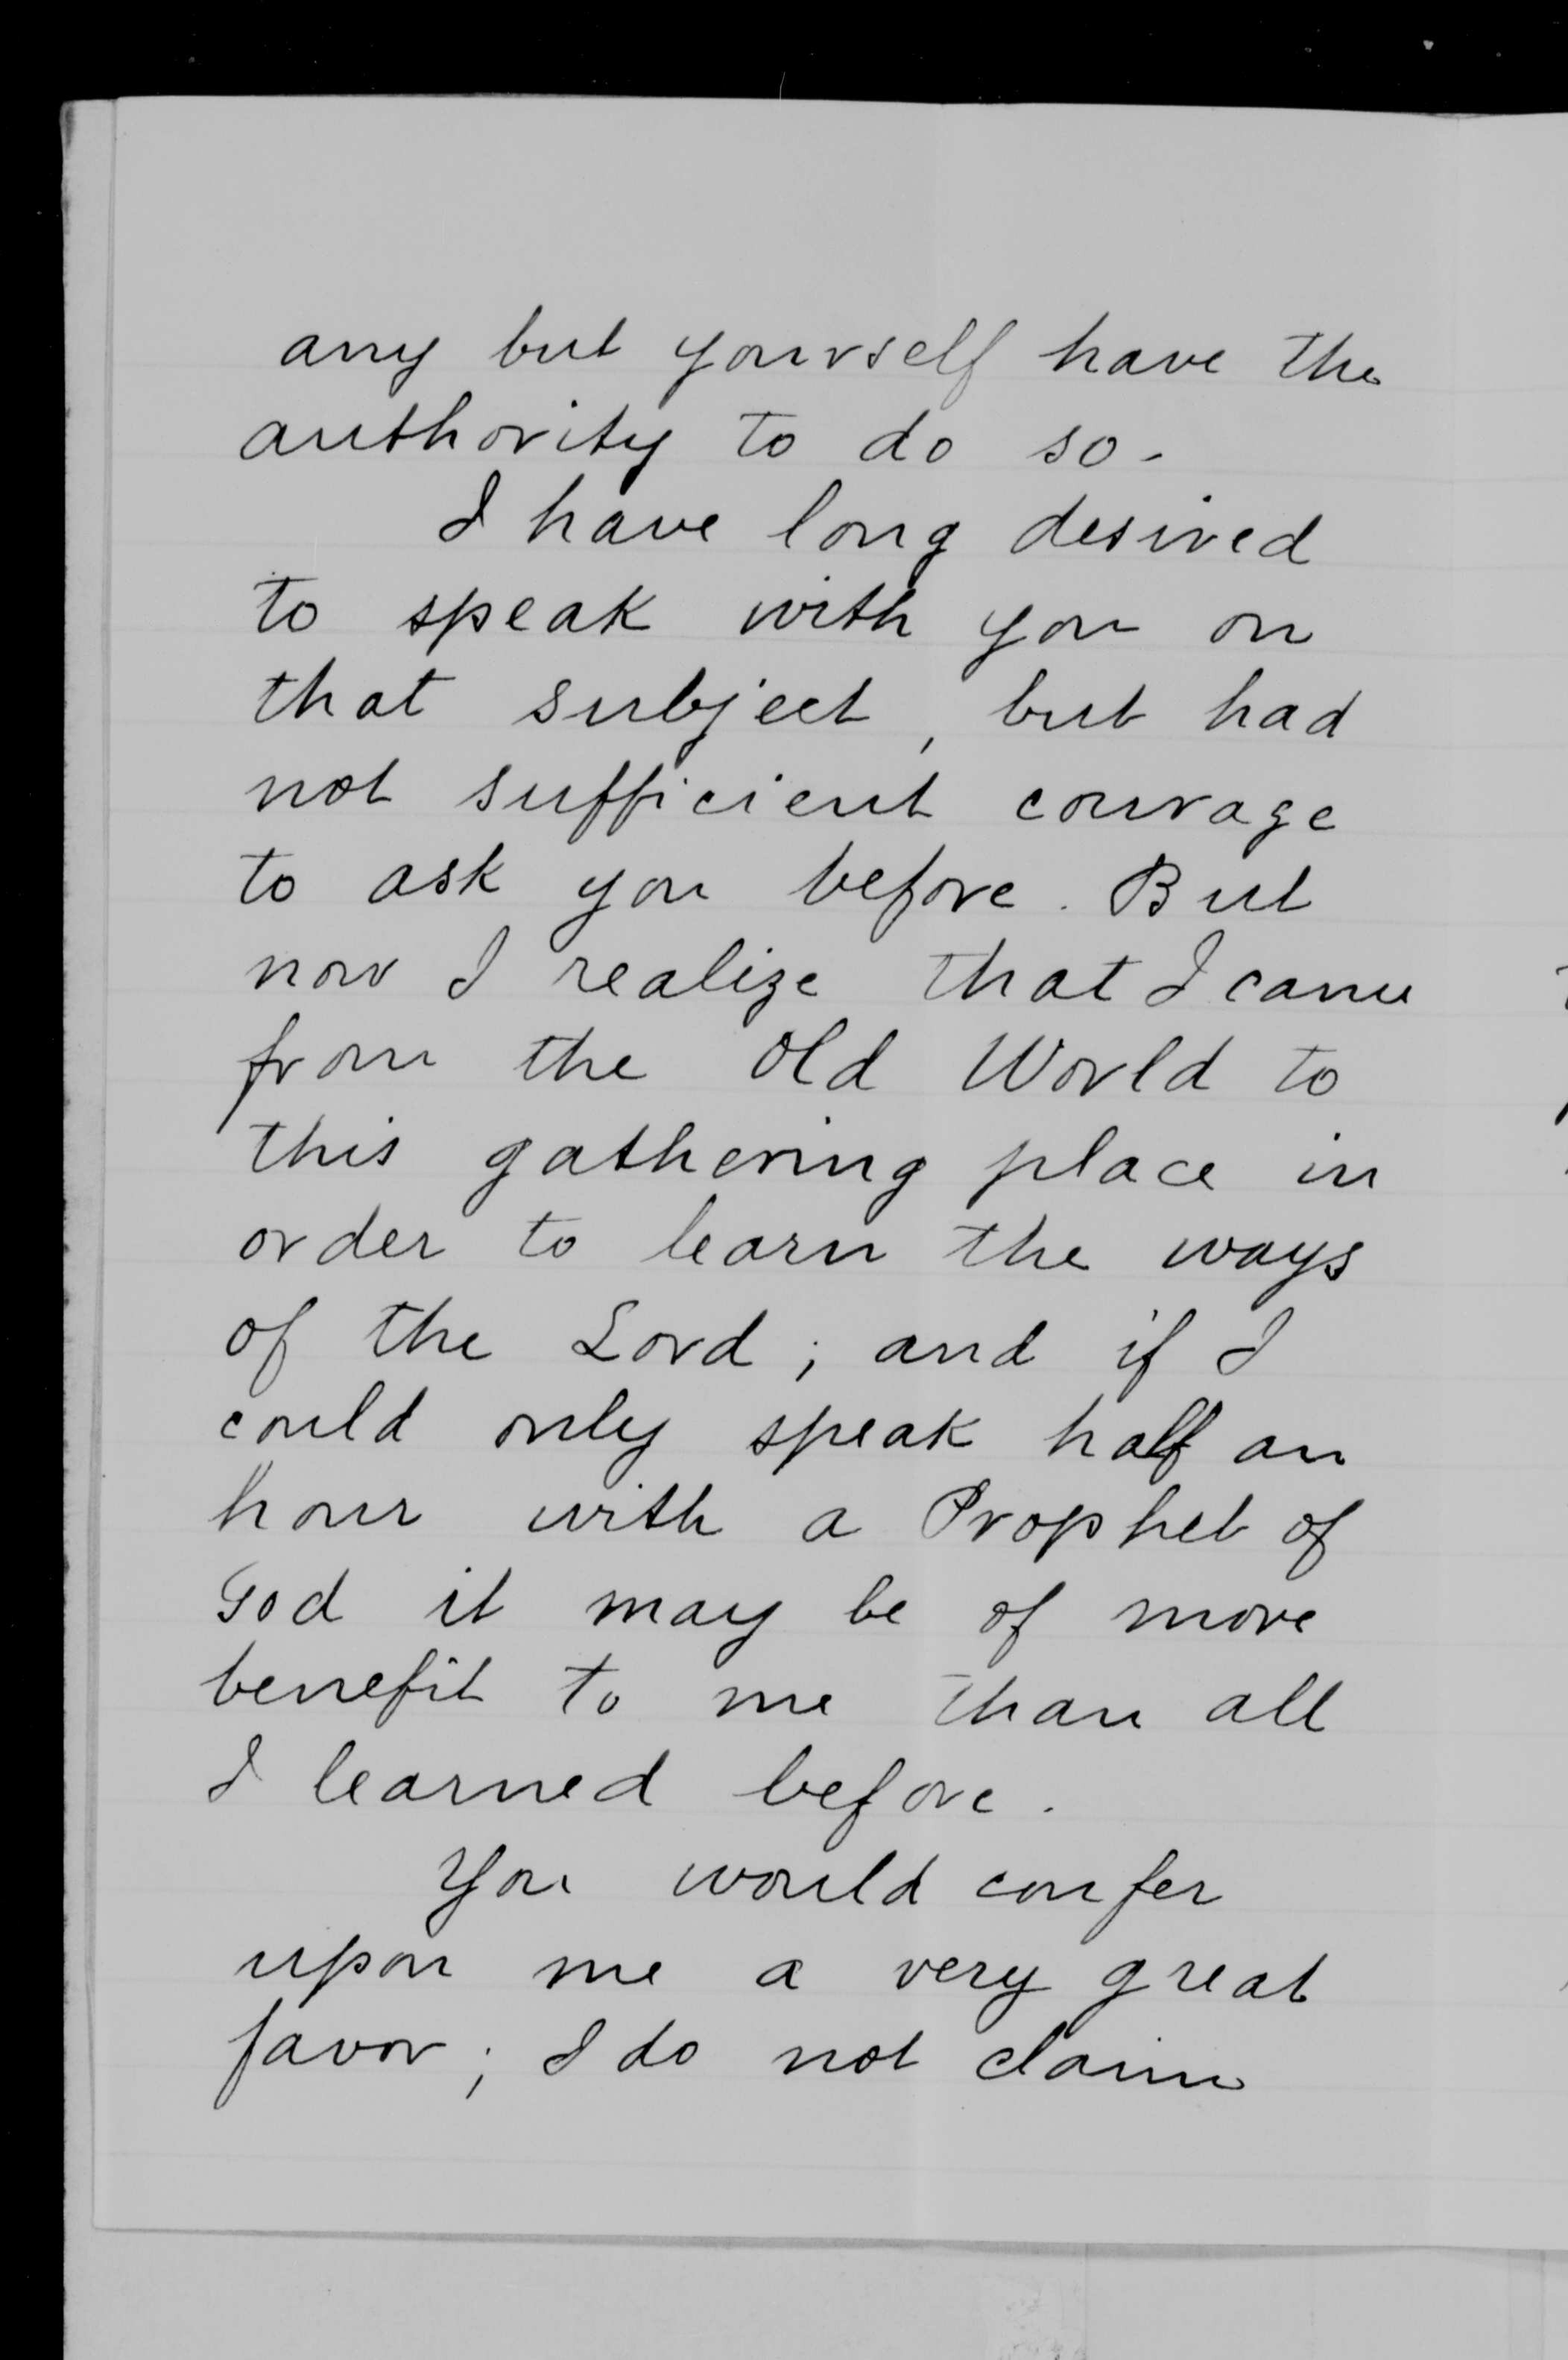 any but yourself have the
authority to do so.
I have long desired
to speak with you on
that subject, but had
not sufficient courage
to ask you before. But
now I realize that I came
from the Old World to
this gathering place in
order to learn the ways
of the Lord; and if I
could only speak half an
hour with a Prophet of
God it may be of more
benefit to me than all
I learned before.
You would confer
upon me a very great
favor; I do not claim